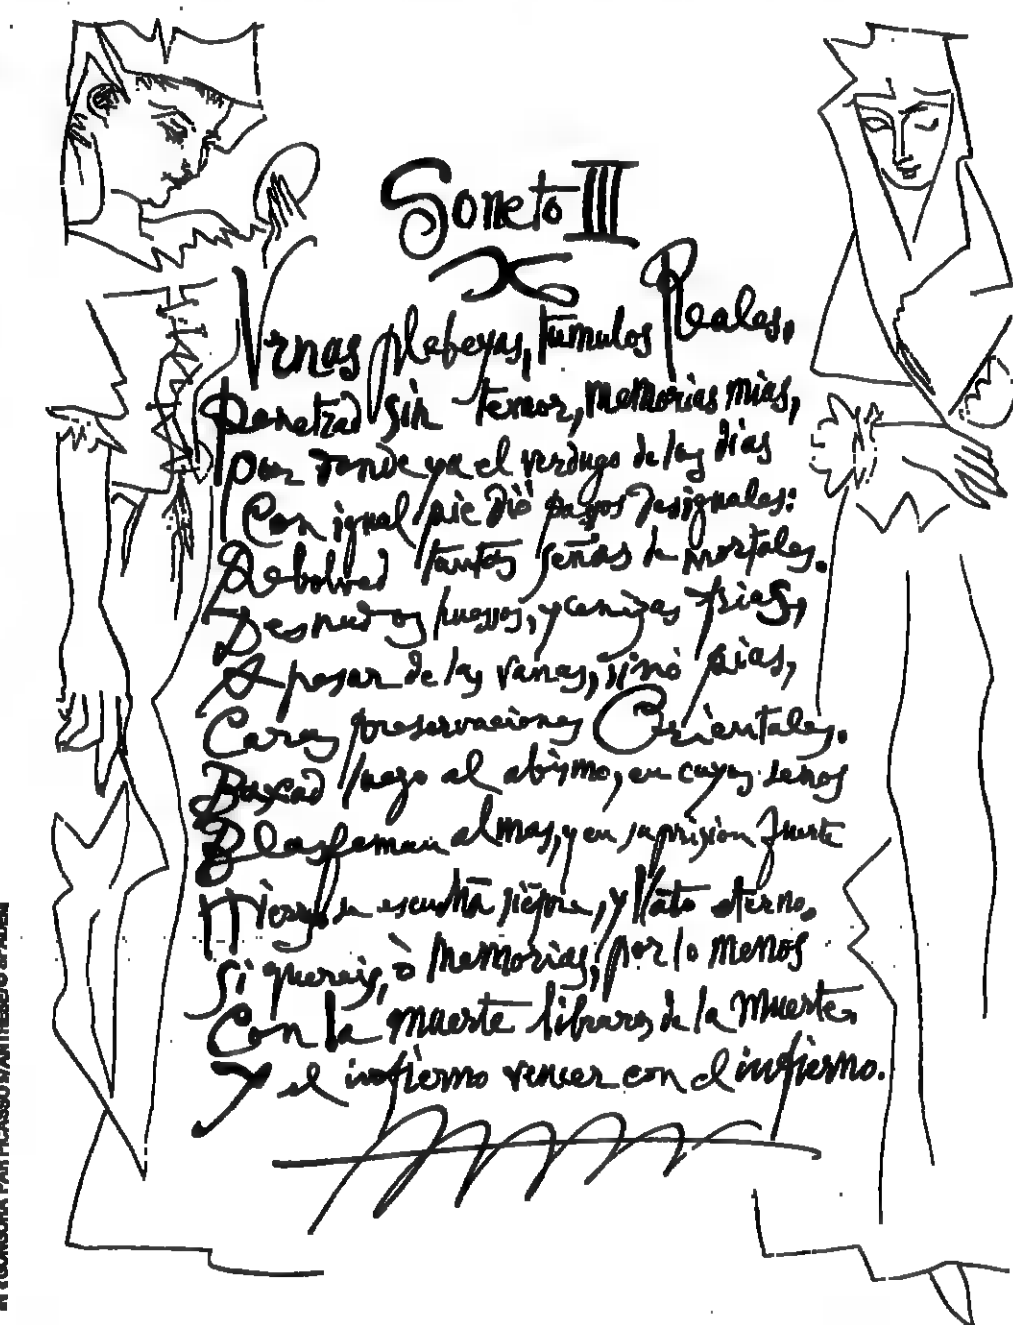 Soneto III
Vrnas plebeyas, tumulos Reales,
Penetrad sin temor, memorias mias,
por donde ya el verdugo de los dias
Con igual pie dió pasos desiguales:
Rebolved tantas señas de mortales.
Desnudos huessos, y cenizas frias,
A pesar de las vanas, si nó pias,
Caras preservaciones Orientales.
Baxad luego al abismo, en cuyos senos
Blasfeman almas, y en su prision fuerte
Hierros se escuchā siēpre, y llāto eterno,
Si quereis, ò memorias, por lo menos
Con la muerte libraros de la Muerte,
Y el infierno vencer con el infierno.
GONGORA PAR PICASSO